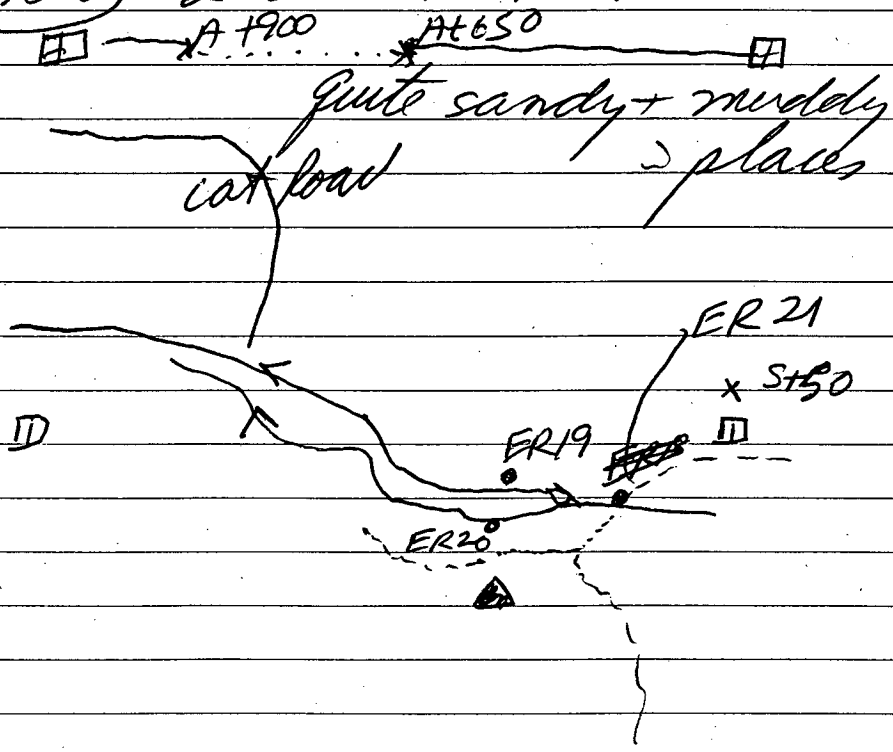 A +900 At650
Quite sandy + muddy
places
cat road
ER 21
St50
ER19
ER20